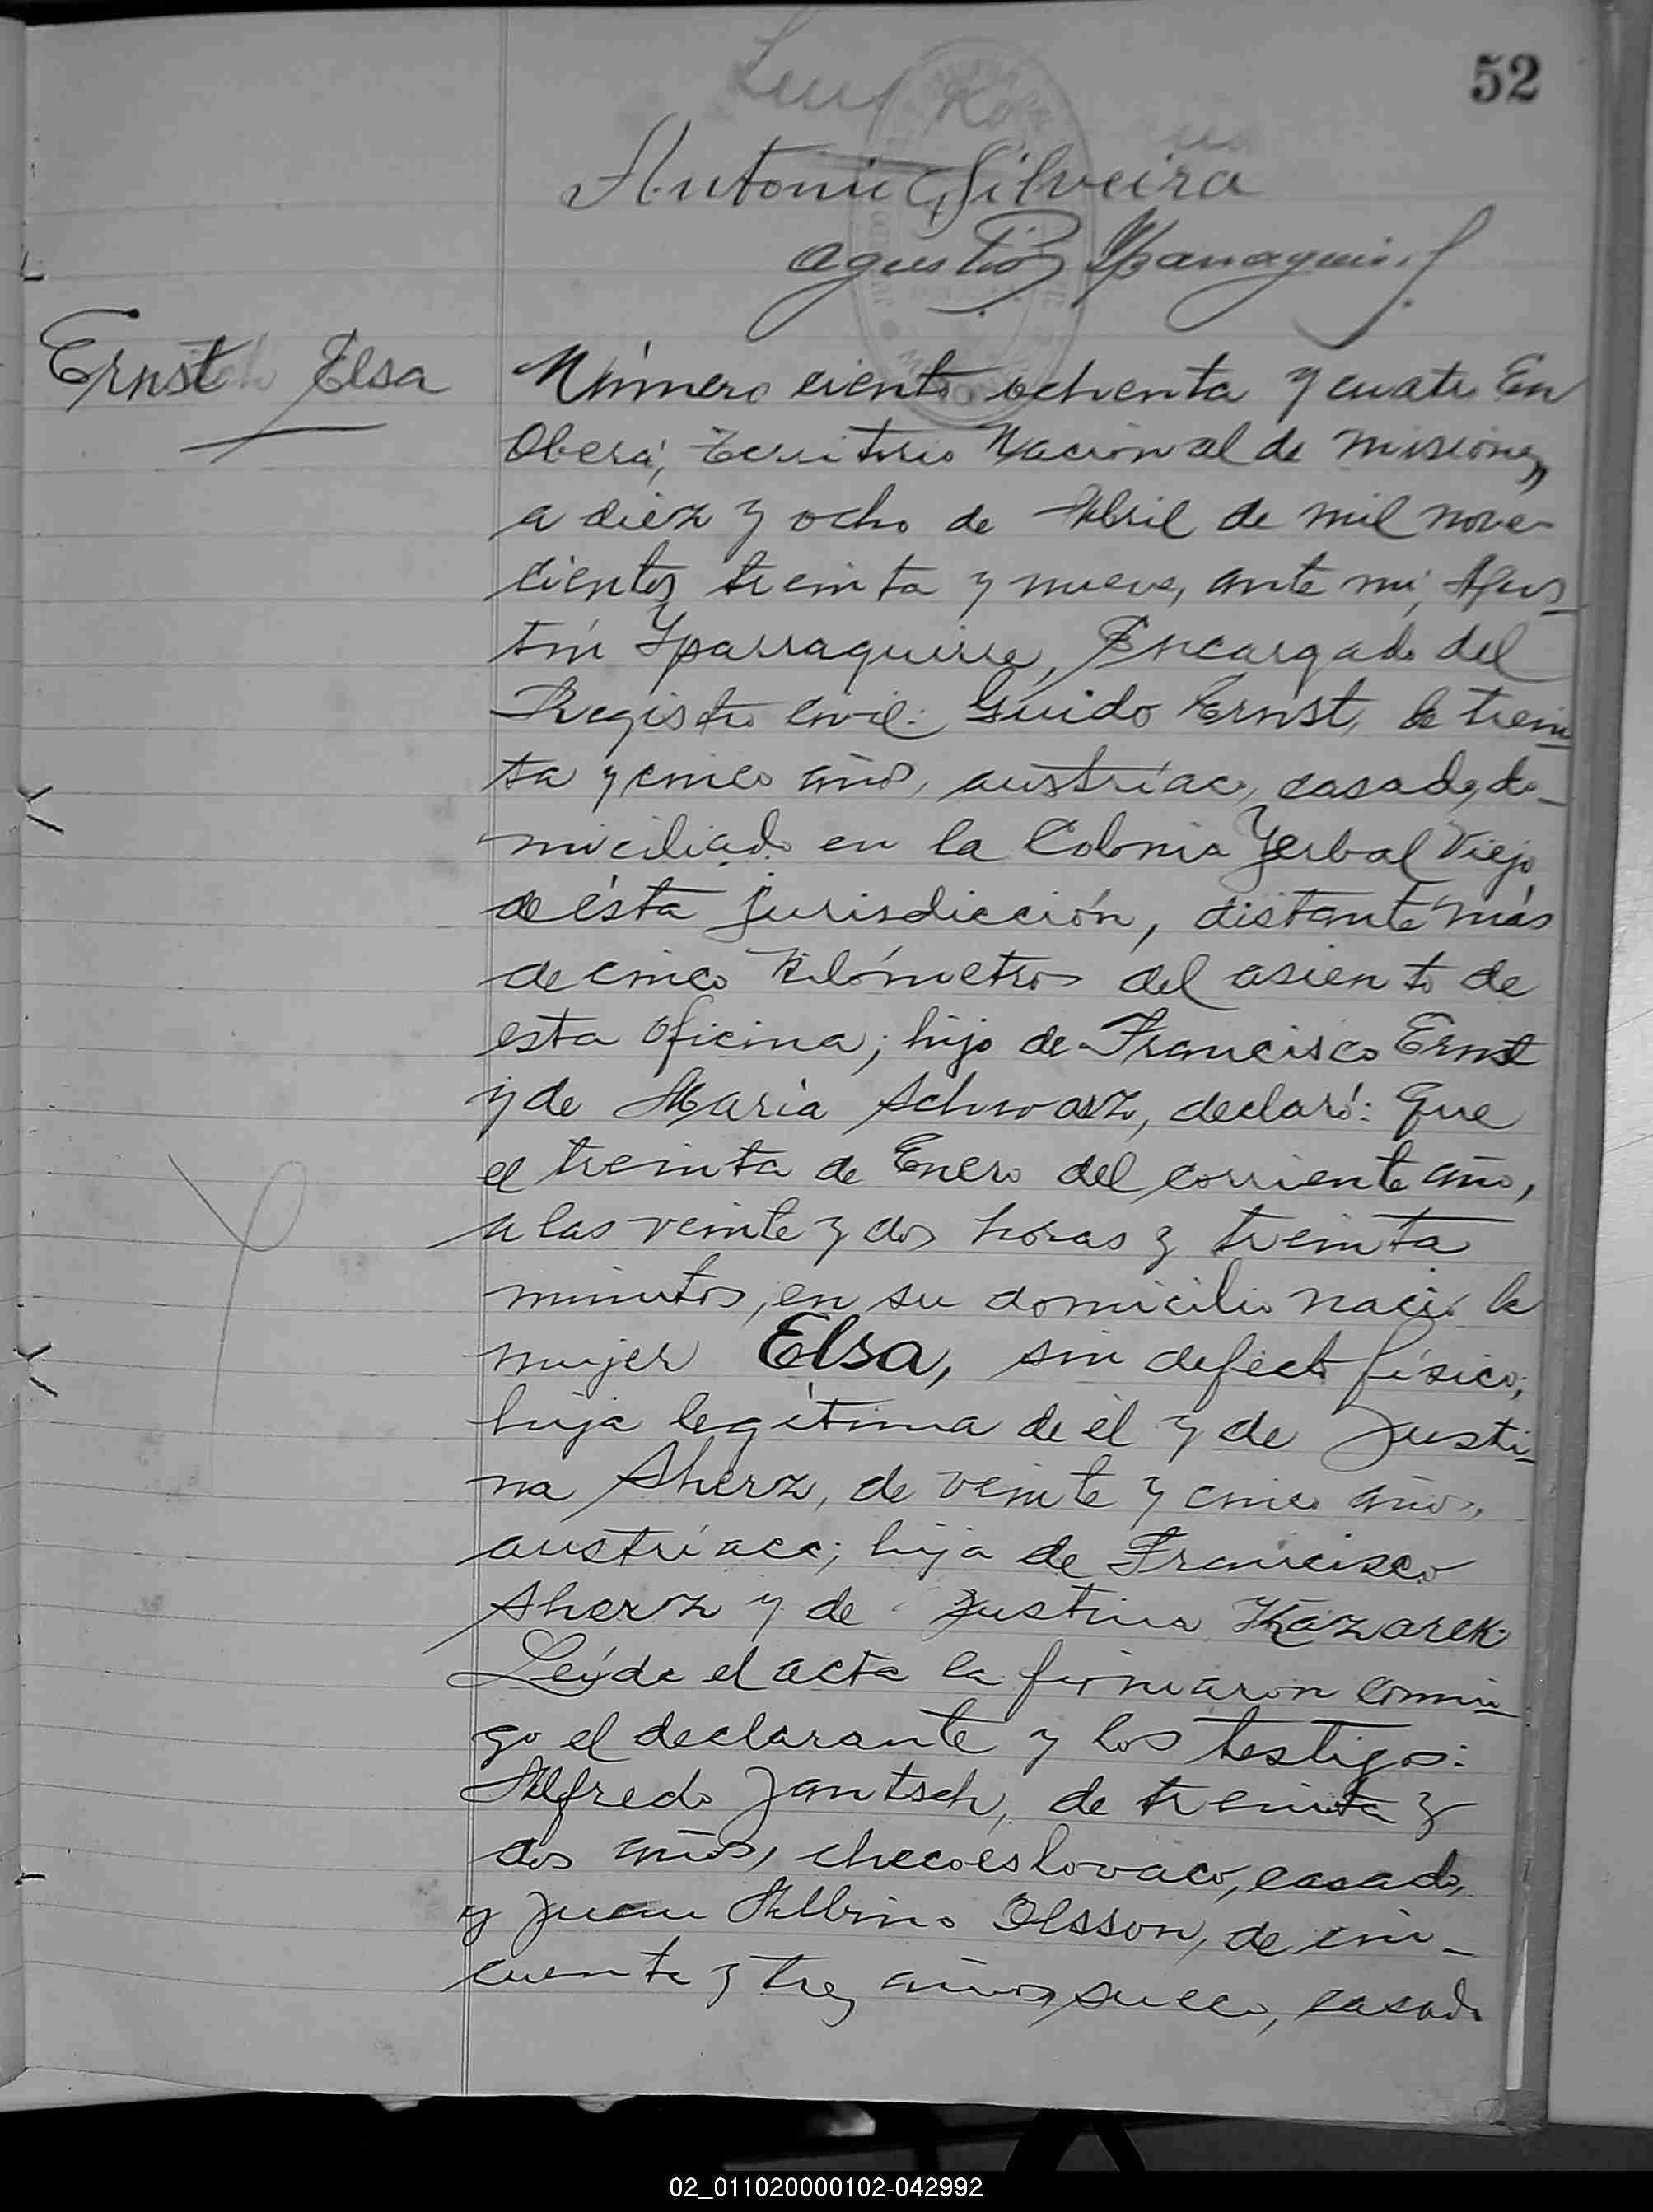 52
Antonio Silveira
Agustín Yparraguirre
Ernst Elsa
Número ciento ochenta y cuatro En
Oberá, territorio Nacional de Misiones,
a diez y ocho de Abril de mil nove-
cientos treinta y nueve, ante mí, Agus-
tín Yparraguirre, Encargado del
Registro Civil: Guido Ernst, de trein-
ta y cinco años, austríaco, casado, do-
miciliado en la Colonia Yerbal Viejo
de ésta jurisdicción, distante más
de cinco kilómetros del asiento de
esta oficina; hijo de Francisco Ernst
y de María Schwarz, declaró: Que
el treinta de Enero del corriente año,
a las veinte y dos horas y treinta
minutos, en su domicilio nació la
mujer Elsa, sin defecto físico;
hija legítima de él y de Justi-
na Sherz, de veinte y cinco años,
austríaca; hija de Francisco
Sherz y de Justina Kazarek.
Leída el acta la firmaron conmi-
go el declarante y los testigos:
Alfredo Jantsch, de treinta y
dos años, checoeslovaco, casado,
y Juan Albino Olsson, de cin-
cuenta y tres años, sueco, casado
02_011020000102-042992